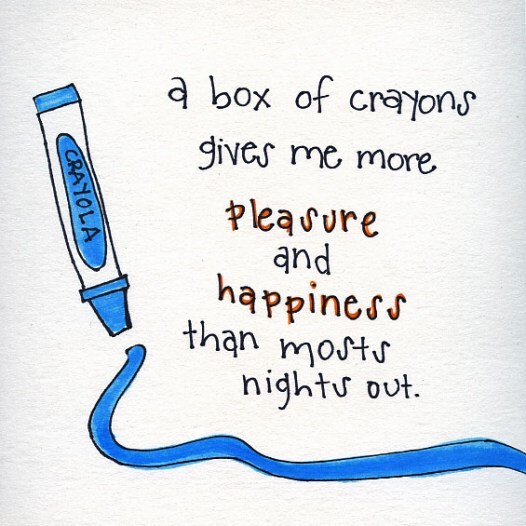 CRAYOLA
a box of crayons
gives me more
pleasure
and
happiness
than mosts
nights out.